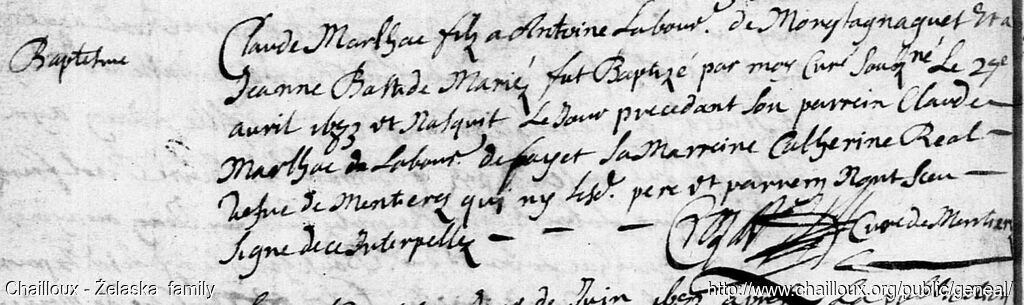 Baptesme
Claude Marlhac filz a Antoine Labour. de Montagnaguet Et a
Jeanne Bastide Mariez fut Baptizé par moy Curé Sousigné Le 29e
avril 1673 et Nasquit Le Jour precedant Son parrein Claude
Marlhac Labour. de fayet Sa Marreine Catherine Real
vefve de Mentieres qui ny lesd. pere et parrein N'ont Sceu
Signe de ce Interpellez Curé de Mentieres
de Juin
Chailloux - Żelaska family
http://www.chailloux.org/public/geneal/